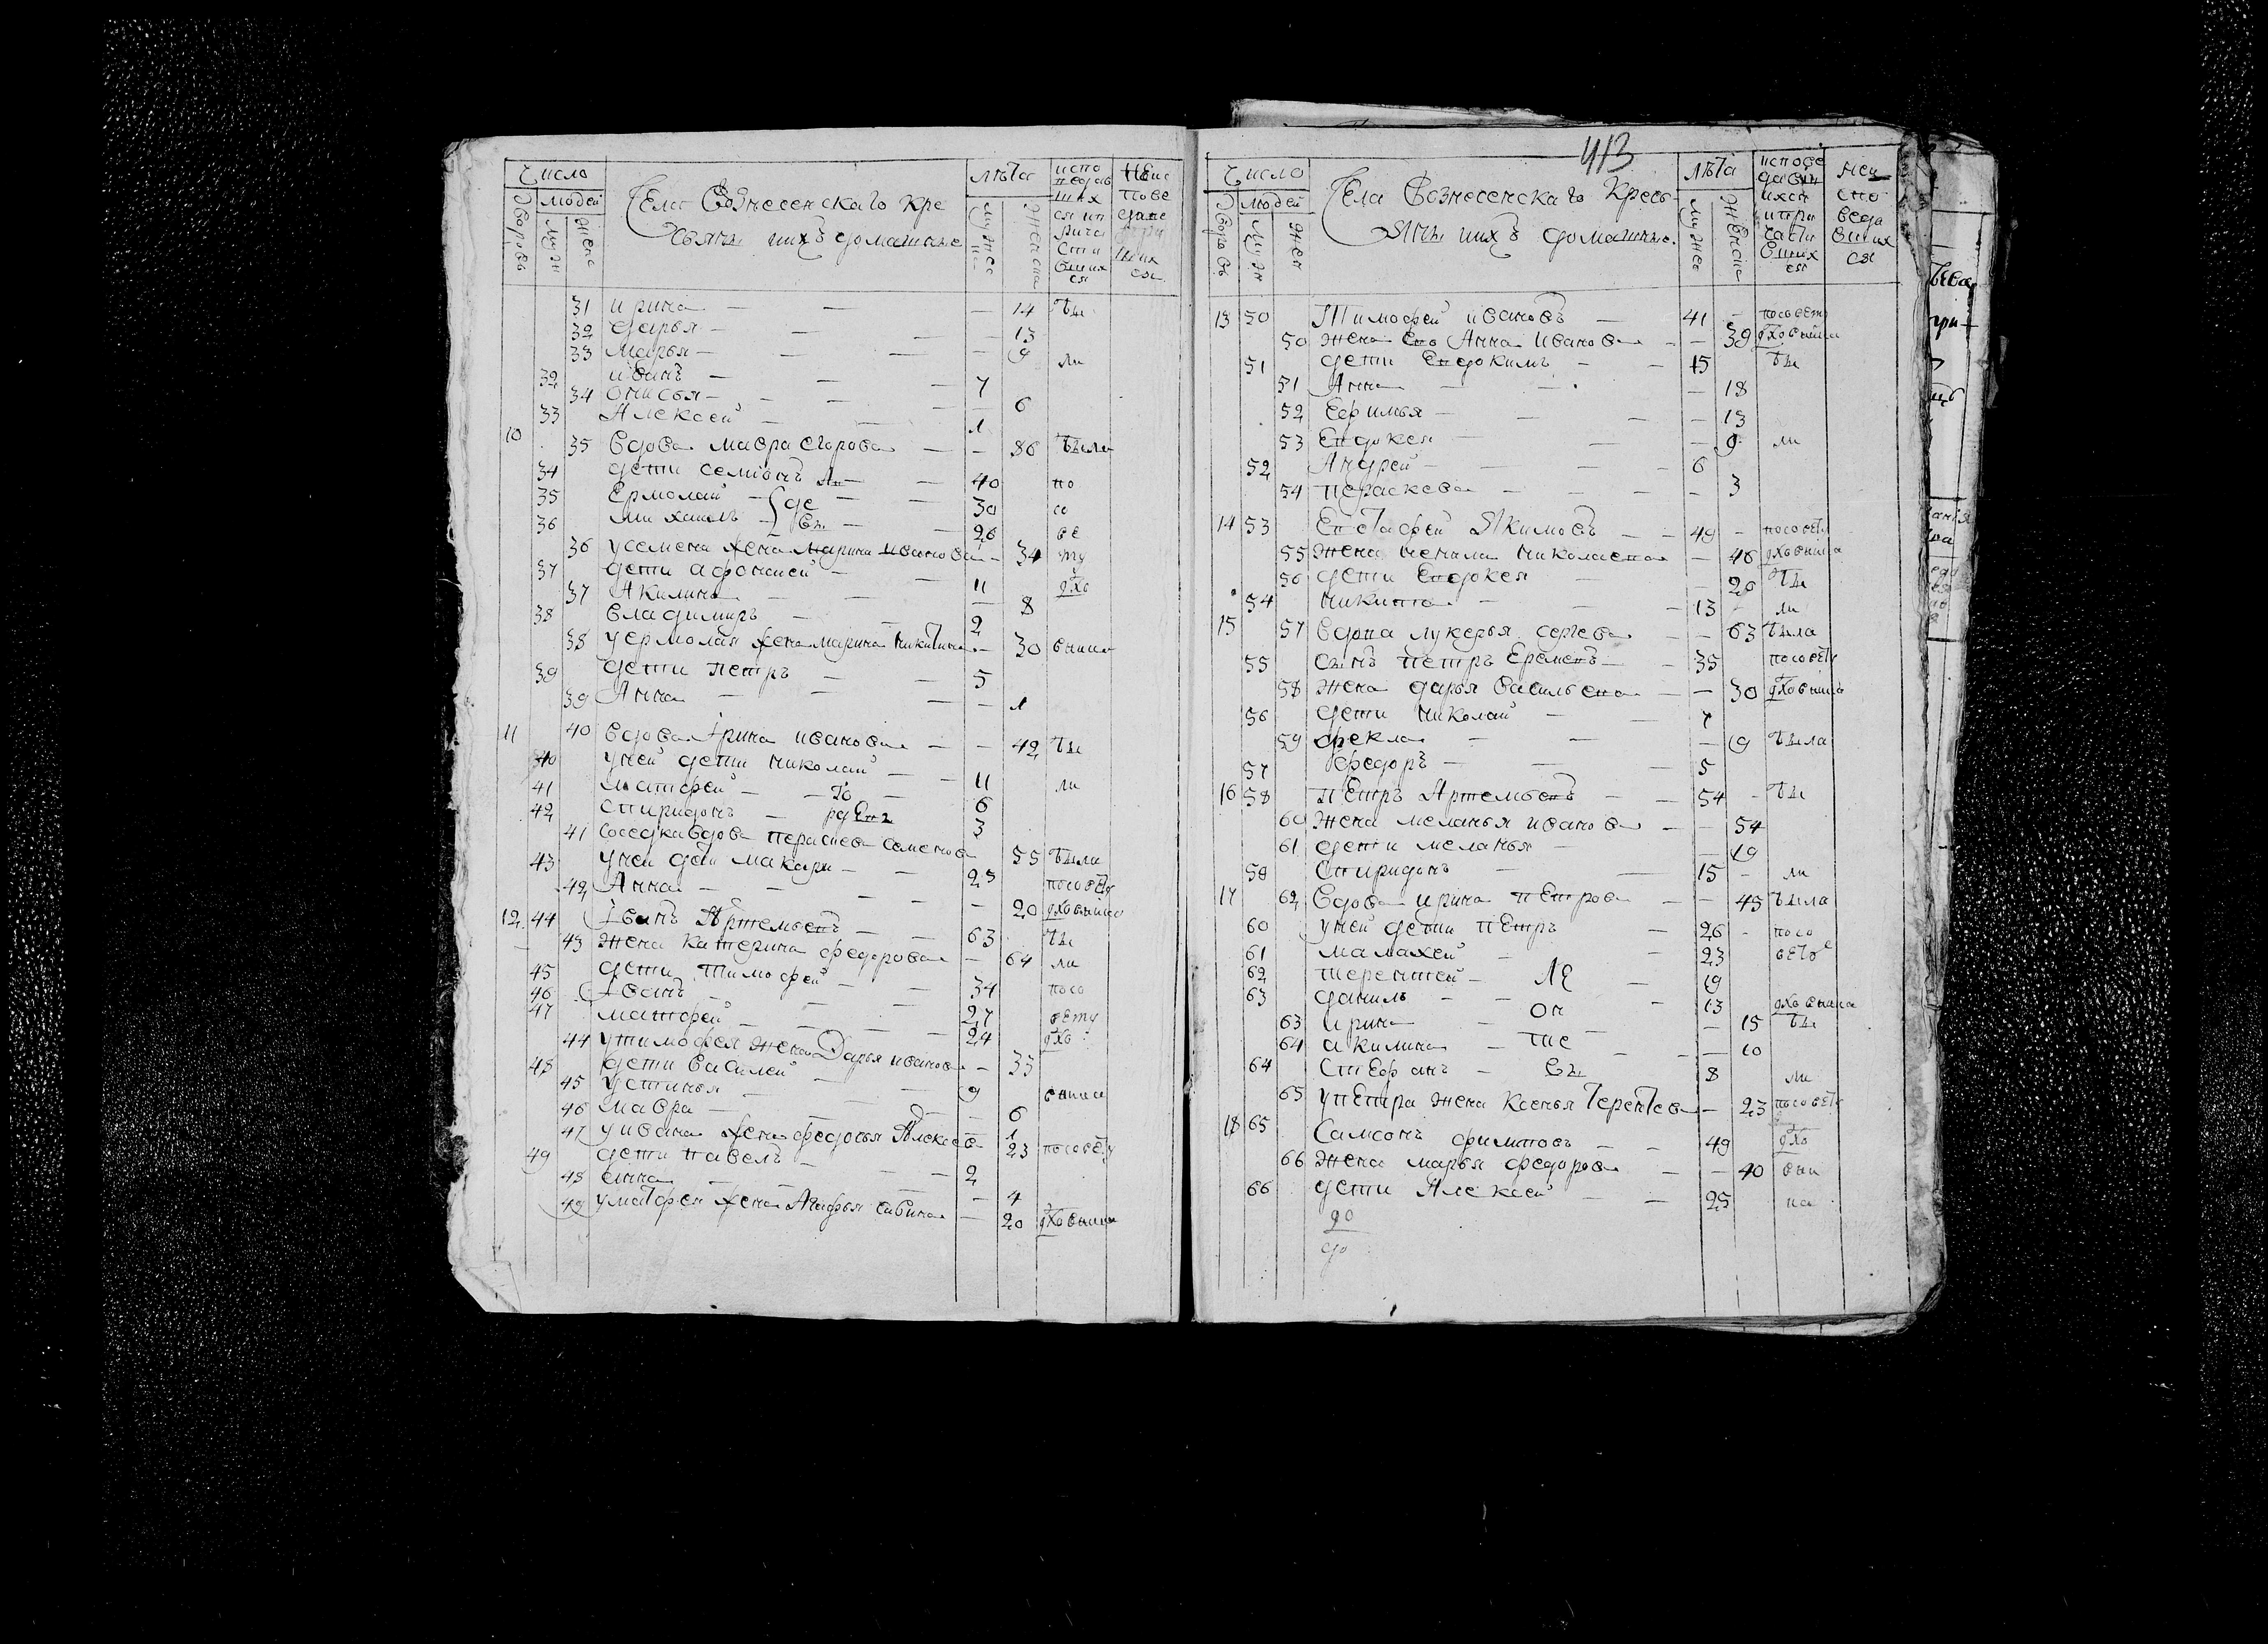 Число
людей
дворовъ
муж
женс
Села Вознесенскаго кре
стьяня ихъ домашние
лѣта
мужес
женска
испо
ведав
шихся
31 ирина — — — 14 бы
32 дарья — — — 13
33 марья — — — 9 ли
32 иванъ — — — 7
34 онисья — — — 6
33 Алексей — — 1
10 35 вдова мавра егорова — — 86 была
34 дети семионъ — — 40 по
35 Ермолай — — 30 со
36 михаилъ — — 26 ве
36 усемена жена марина иванова — 34 ту
37 дети афонасей — — 11 дхо
37 Акилина — — 8
38 владимиръ — — 2
38 уермолая жена марина никитина — 30 вника
39 дети петръ — — 5
39 Анна — — — 1
11 40 вдова Ирина иванова — — 42 бы
40 уней дети николай — — 11 ли
41 матфей — — 6
42 спиридонъ — 3
41 соседка вдова параскева семенова 55 была
43 уней дети макари — — 25 посовету
42 Анна — — — 20 дховника
12 44 Иванъ Артемьевъ — — 63 бы
43 жена катерина федорова — 64 ли
45 дети тимофей — — 34 посо
46 Иванъ — — 27 вету
47 матфей — — — 24 дхо
44 утимофея жена Дарья иванова — 33
48 дети василей — — 9 вника
45 устинья — — — 6
46 мавра — — — 1
47 уивана жена федосья Алексеева — 23 посовету
49 дети павелъ — — 2
48 анна — — — 4
49 уматфея жена Агафья савина — 20 дховника
413
Число
людей
дворовъ
муж
жен
Села Вознесенскаго Кресь
янъ ихъ домашние.
лѣта
мужес
женска
испове
давши
ихся
и при
части
вшихся
неи
спо
веда
вших
ся
13 50 Тимофей ивановъ — 41 — посовету
50 жена Ево Анна Иванова — — 39 дховника
51 дети Евдокимъ — — 15 бы
51 Анна — — — 18
52 Ефимья — — — 13
53 Евдокея — — — 9 ли
52 Андрей — — — 6
54 параскева — — — 3
14 53 Евстафей Якимовъ — — 49 — посовету
55 жена ненила николаевна — 46 дховника
56 дети Евдокея — — 20 бы
54 никита — — — 13 — ли
15 57 вдова лукерья сергева — — 63 была
55 сынъ петръ Еремевъ — — 35 посовету
58 жена дарья васильевна — — 30 дховника
56 дети николай — — 7
59 фекла — — — 9 была
57 федоръ — — 5
16 58 пЕтръ Артемьевъ — — 54 — бы
60 жена меланья иванова — — 54
61 дети меланья — — 19
59 Спиридонъ — — 15 — ли
17 62 вдова ирина пЕтрова — — 45 была
60 уней дети пЕтръ — 26 — посо
61 малахей — — 23 вето
62 терентей — — 19
63 данилъ — — — 13 дховника
63 ирина — — — 15 бы
64 акилина — — — 10
64 СтЕфанъ — 8 ли
65 упЕтра жена Ксенья Терентева — 23 посовету
18 65 Самсонъ филиповъ — 49 дхо
66 жена марья федорова — — 40 вни
66 дети Алексей — — 25 ка
до
до